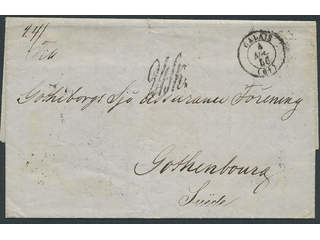 241
CALAIS
4
56
(61)
Götheborgs Sjö Assurance Förening
Gothenbourg
Suède